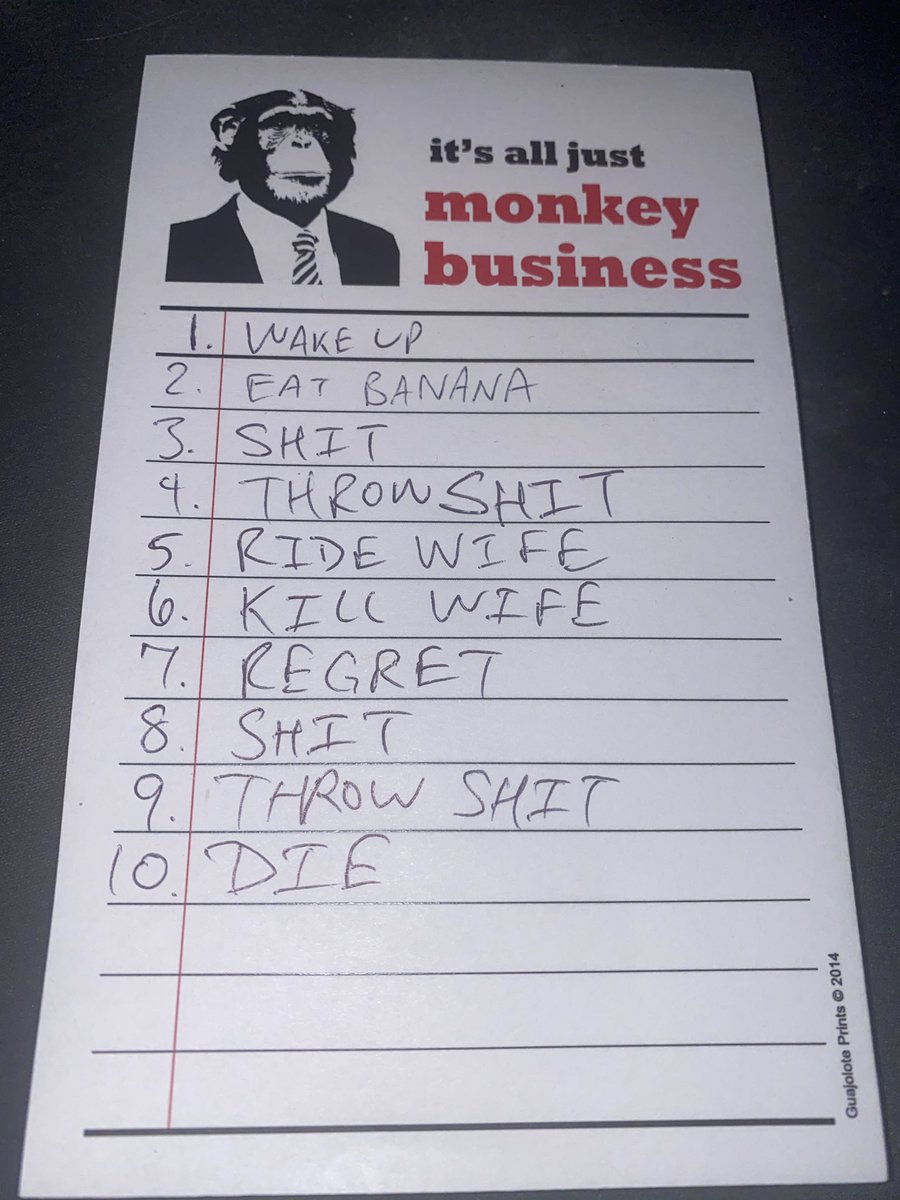 it's all just
monkey
business
1. WAKE UP
2. EAT BANANA
3. SHIT
4. THROW SHIT
5. RIDE WIFE
6. KILL WIFE
7. REGRET
8. SHIT
9. THROW SHIT
10. DIE
Guajolote Prints © 2014